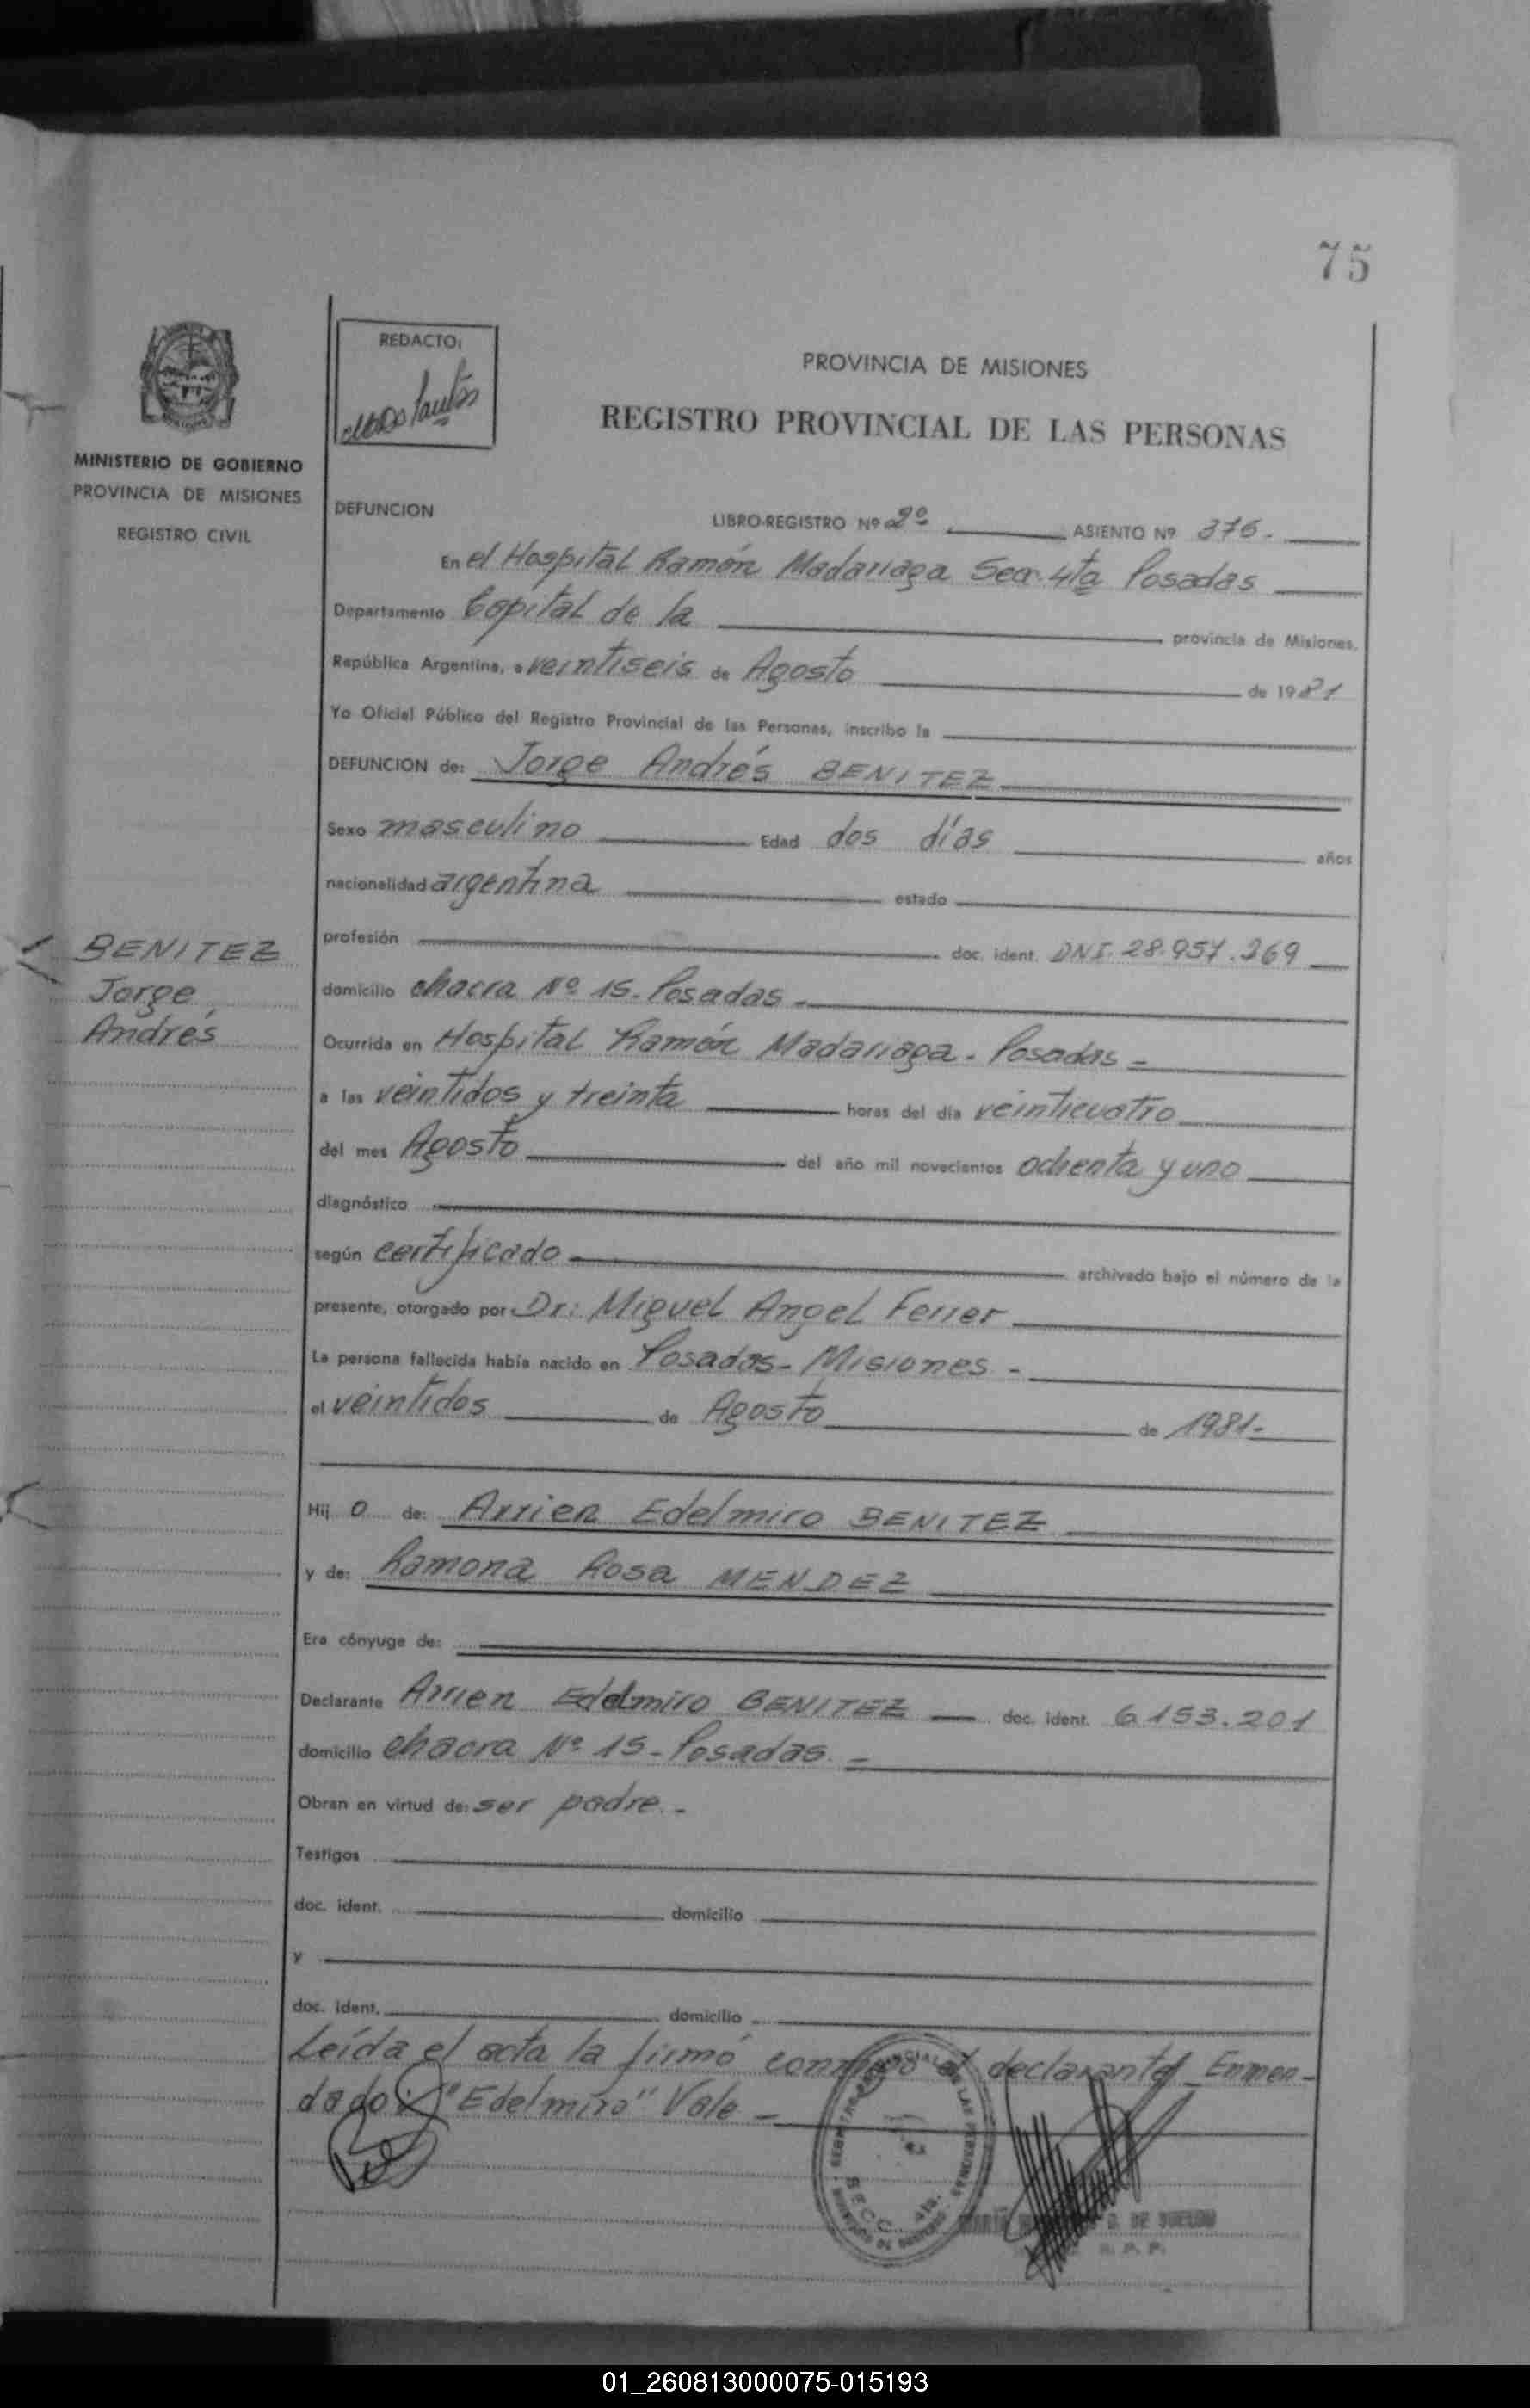 75
REDACTO:
PROVINCIA DE MISIONES
REGISTRO PROVINCIAL DE LAS PERSONAS
MINISTERIO DE GOBIERNO
PROVINCIA DE MISIONES
REGISTRO CIVIL
DEFUNCION LIBRO-REGISTRO Nº 2º ASIENTO Nº 376.-
En el Hospital Ramón Madariaga Secc. 4ta Posadas
Departamento Capital de la provincia de Misiones,
República Argentina, a veintiseis de Agosto de 1981
Yo Oficial Público del Registro Provincial de las Personas, inscribo la
DEFUNCION de: Jorge Andrés BENITEZ
Sexo masculino Edad dos días años
nacionalidad argentina estado
profesión doc. ident. DNI. 28.957.269
BENITEZ
Jorge
Andrés
domicilio chacra Nº 15. Posadas.-
Ocurrida en Hospital Ramón Madariaga. Posadas -
a las veintidos y treinta horas del día veinticuatro
del mes Agosto del año mil novecientos ochenta y uno
diagnóstico
según certificado archivado bajo el número de la
presente, otorgado por Dr: Miguel Angel Ferrer
La persona fallecida había nacido en Posadas- Misiones -
el veintidos de Agosto de 1981-
Hij o de: Arrien Edelmiro BENITEZ
y de: Ramona Rosa MENDEZ
Era cónyuge de:
Declarante Arrien Edelmiro BENITEZ doc. ident. 6.153.201
domicilio chacra Nº 15- Posadas. -
Obran en virtud de: ser padre.-
Testigos
doc. ident. domicilio
y
doc. ident. domicilio
Leída el acta la firmó conmigo el declarante. Enmen-
dado: "Edelmiro" Vale -
SECC. 4ta.
D. DE SUELDO
01_260813000075-015193